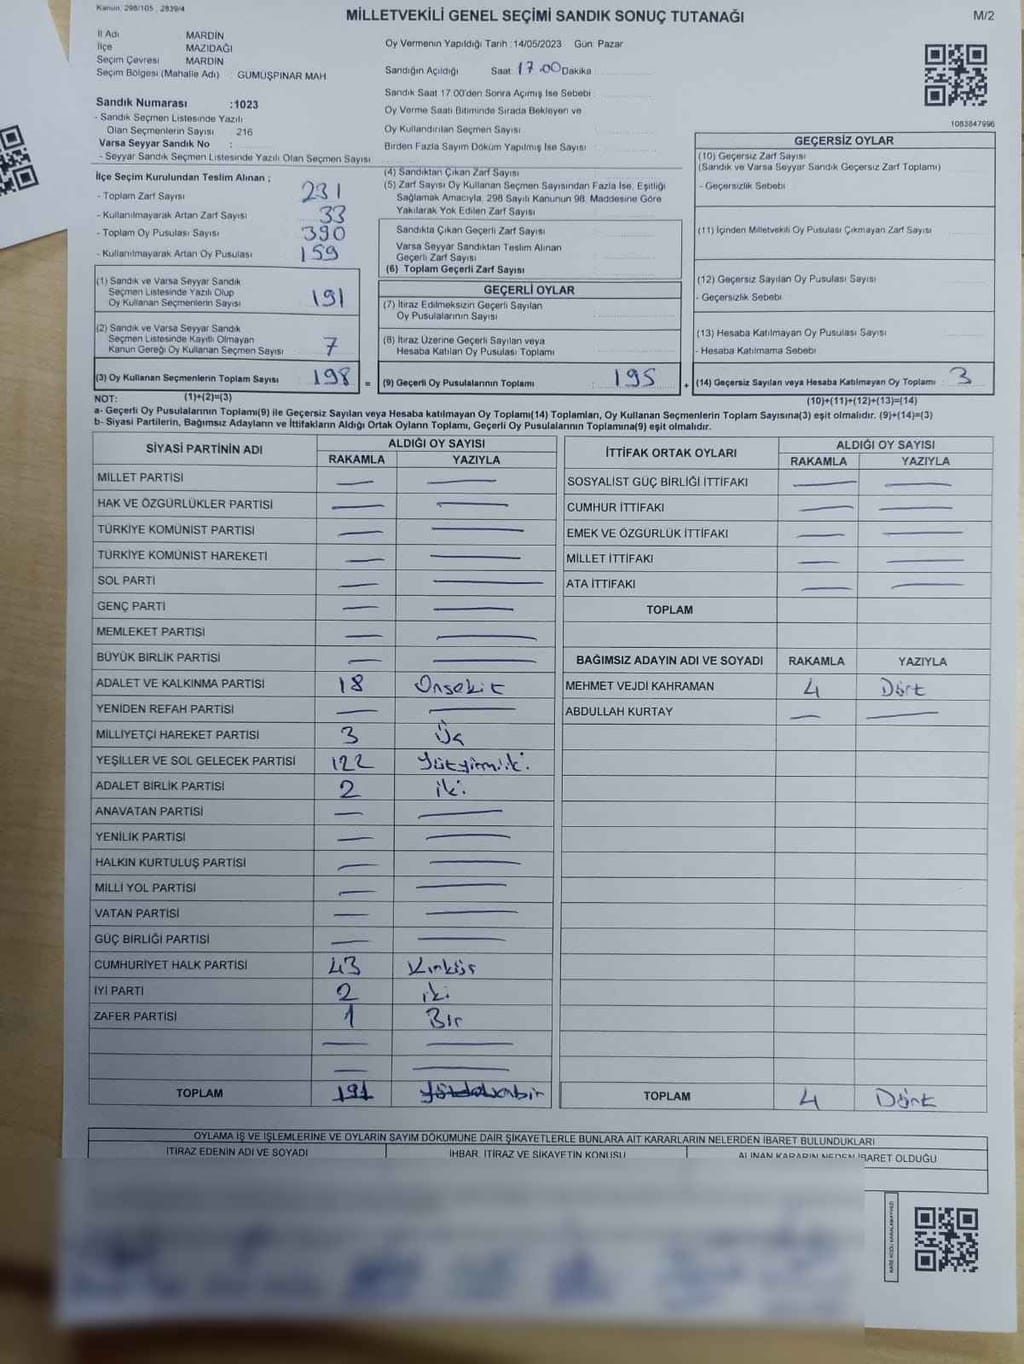 Kanun: 298/105 , 2839/4
MİLLETVEKİLİ GENEL SEÇİMİ SANDIK SONUÇ TUTANAĞI
M/2
İl Adı MARDİN
İlçe MAZIDAĞI
Seçim Çevresi MARDİN
Seçim Bölgesi (Mahalle Adı) : GÜMÜŞPINAR MAH
Sandık Numarası :1023
- Sandık Seçmen Listesinde Yazılı
Olan Seçmenlerin Sayısı 216
Varsa Seyyar Sandık No :
- Seyyar Sandık Seçmen Listesinde Yazılı Olan Seçmen Sayısı
Oy Vermenin Yapıldığı Tarih :14/05/2023 Gün: Pazar
Sandığın Açıldığı Saat 17.00 Dakika
Sandık Saat 17.00'den Sonra Açımış İse Sebebi
Oy Verme Saati Bitiminde Sırada Bekleyen ve
Oy Kullandırılan Seçmen Sayısı
Birden Fazla Sayım Döküm Yapılmış İse Sayısı
1083847996
İlçe Seçim Kurulundan Teslim Alınan ;
- Toplam Zarf Sayısı 231
- Kullanılmayarak Artan Zarf Sayısı 33
- Toplam Oy Pusulası Sayısı 390
- Kullanılmayarak Artan Oy Pusulası 159
(1) Sandık ve Varsa Seyyar Sandık
Seçmen Listesinde Yazılı Olup
Oy Kullanan Seçmenlerin Sayısı 191
(2) Sandık ve Varsa Seyyar Sandık
Seçmen Listesinde Kayıtlı Olmayan
Kanun Gereği Oy Kullanan Seçmen Sayısı 7
(3) Oy Kullanan Seçmenlerin Toplam Sayısı 198 =
(4) Sandıktan Çıkan Zarf Sayısı
(5) Zarf Sayısı Oy Kullanan Seçmen Sayısından Fazla İse, Eşitliği
Sağlamak Amacıyla, 298 Sayılı Kanunun 98. Maddesine Göre
Yakılarak Yok Edilen Zarf Sayısı
Sandıkta Çıkan Geçerli Zarf Sayısı
Varsa Seyyar Sandıktan Teslim Alınan
Geçerli Zarf Sayısı
(6) Toplam Geçerli Zarf Sayısı
GEÇERLİ OYLAR
(7) İtiraz Edilmeksizin Geçerli Sayılan
Oy Pusulalarının Sayısı
(8) İtiraz Üzerine Geçerli Sayılan veya
Hesaba Katılan Oy Pusulası Toplamı
(9) Geçerli Oy Pusulalarının Toplamı 195 +
GEÇERSİZ OYLAR
(10) Geçersiz Zarf Sayısı
(Sandık ve Varsa Seyyar Sandık Geçersiz Zarf Toplamı)
- Geçersizlik Sebebi
(11) İçinden Milletvekili Oy Pusulası Çıkmayan Zarf Sayısı
(12) Geçersiz Sayılan Oy Pusulası Sayısı
- Geçersizlik Sebebi
(13) Hesaba Katılmayan Oy Pusulası Sayısı
- Hesaba Katılmama Sebebi
(14) Geçersiz Sayılan veya Hesaba Katılmayan Oy Toplamı 3
NOT: (1)+(2)=(3) (10)+(11)+(12)+(13)=(14)
a- Geçerli Oy Pusulalarının Toplamı(9) ile Geçersiz Sayılan veya Hesaba katılmayan Oy Toplamı(14) Toplamları, Oy Kullanan Seçmenlerin Toplam Sayısına(3) eşit olmalıdır. (9)+(14)=(3)
b- Siyasi Partilerin, Bağımsız Adayların ve İttifakların Aldığı Ortak Oyların Toplamı, Geçerli Oy Pusulalarının Toplamına(9) eşit olmalıdır.
SİYASİ PARTİNİN ADI ALDIĞI OY SAYISI
RAKAMLA YAZIYLA
MİLLET PARTİSİ
HAK VE ÖZGÜRLÜKLER PARTİSİ
TÜRKİYE KOMÜNİST PARTİSİ
TÜRKİYE KOMÜNİST HAREKETİ
SOL PARTİ
GENÇ PARTİ
MEMLEKET PARTİSİ
BÜYÜK BİRLİK PARTİSİ
ADALET VE KALKINMA PARTİSİ 18 Onsekiz
YENİDEN REFAH PARTİSİ
MİLLİYETÇİ HAREKET PARTİSİ 3 Üç
YEŞİLLER VE SOL GELECEK PARTİSİ 122 Yüzyirmiiki
ADALET BİRLİK PARTİSİ 2 iki
ANAVATAN PARTİSİ
YENİLİK PARTİSİ
HALKIN KURTULUŞ PARTİSİ
MİLLİ YOL PARTİSİ
VATAN PARTİSİ
GÜÇ BİRLİĞİ PARTİSİ
CUMHURİYET HALK PARTİSİ 43 Kırküç
İYİ PARTİ 2 iki
ZAFER PARTİSİ 1 Bir
TOPLAM 191 Yüzdoksanbir
İTTİFAK ORTAK OYLARI ALDIĞI OY SAYISI
RAKAMLA YAZIYLA
SOSYALİST GÜÇ BİRLİĞİ İTTİFAKI
CUMHUR İTTİFAKI
EMEK VE ÖZGÜRLÜK İTTİFAKI
MİLLET İTTİFAKI
ATA İTTİFAKI
TOPLAM
BAĞIMSIZ ADAYIN ADI VE SOYADI RAKAMLA YAZIYLA
MEHMET VEJDİ KAHRAMAN 4 Dört
ABDULLAH KURTAY
TOPLAM 4 Dört
OYLAMA İŞ VE İŞLEMLERİNE VE OYLARIN SAYIM DÖKÜMÜNE DAİR ŞİKAYETLERLE BUNLARA AİT KARARLARIN NELERDEN İBARET BULUNDUKLARI
İTİRAZ EDENİN ADI VE SOYADI İHBAR, İTİRAZ VE ŞİKAYETİN KONUSU ALINAN KARARIN NEDEN İBARET OLDUĞU
KARE KODU KARALAMAYINIZ!